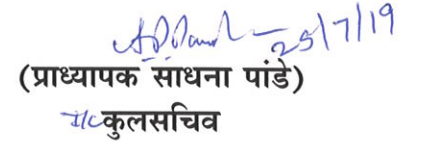 25/7/19
(प्राध्यापक साधना पांडे)
I/c कुलसचिव